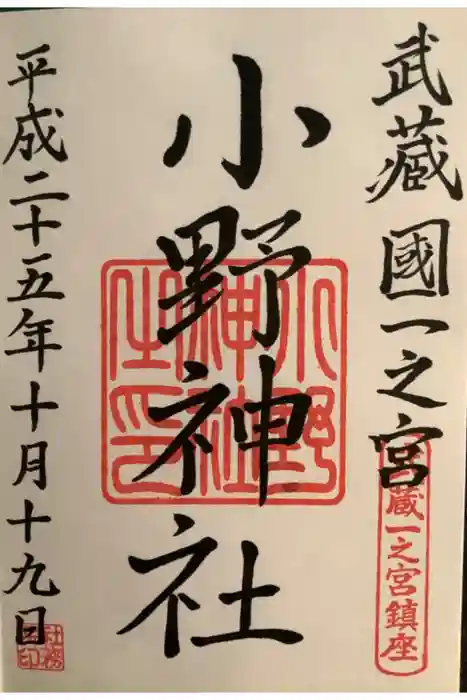 武藏國一之宮
武蔵一之宮鎮座
小野神社
小野神社之印
平成二十五年十月十九日
社務印